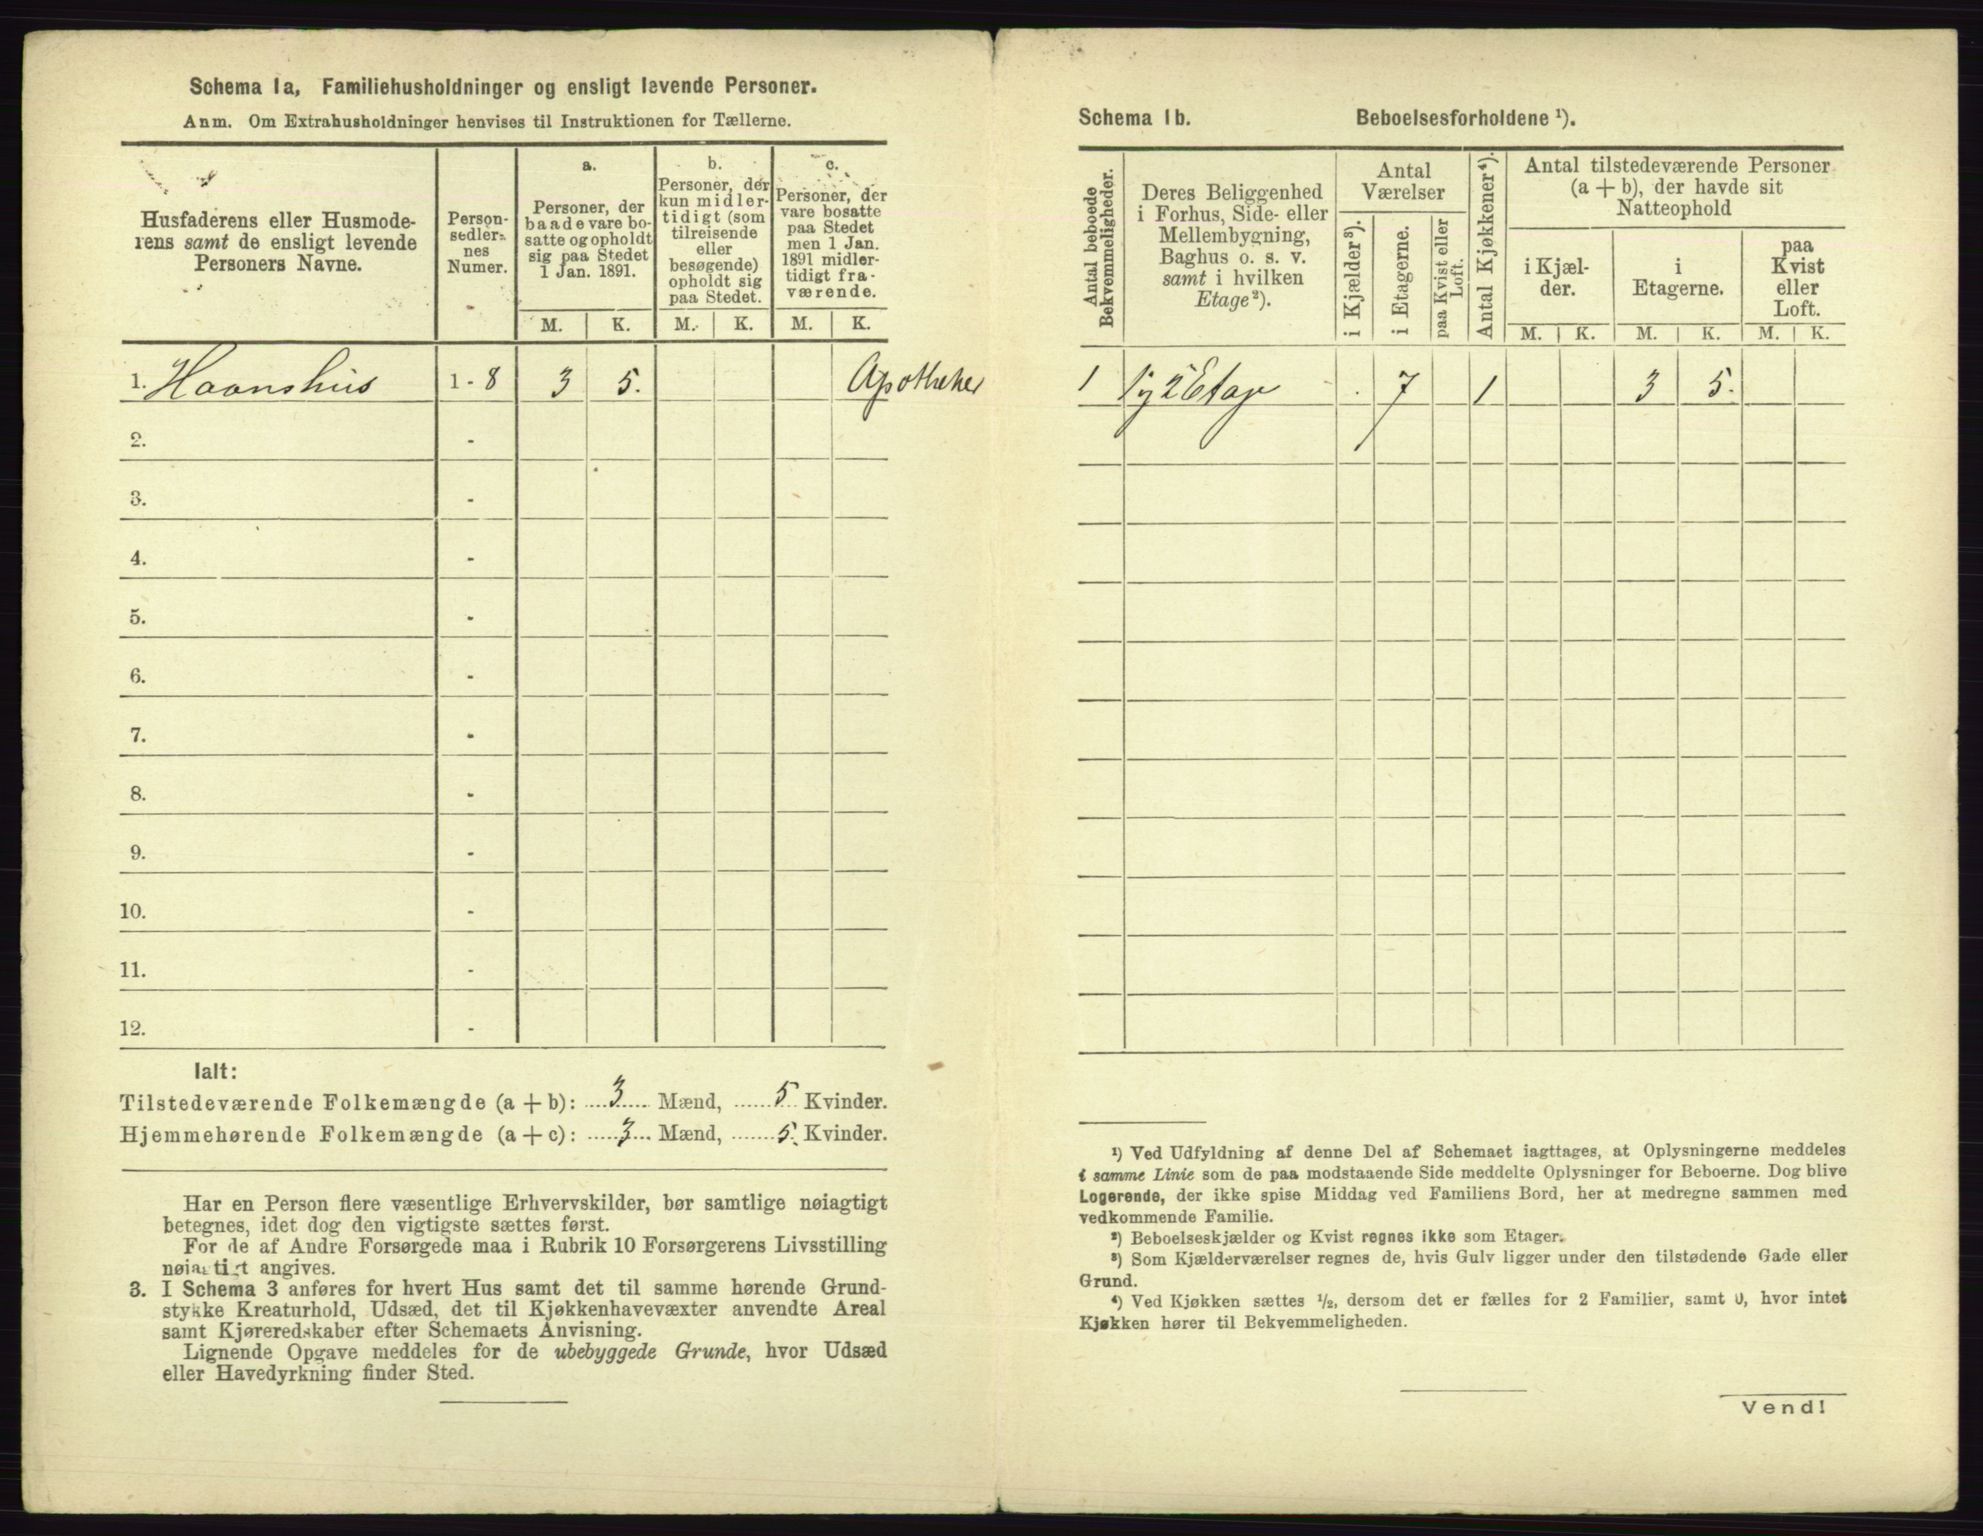 Schema 1a, Familiehusholdninger og ensligt levende Personer.
Anm. Om Extrahusholdninger henvises til Instruktionen for Tællerne.
Husfaderens eller Husmode-
rens samt de ensligt levende
Personers Navne.
Person-
sedler-
nes
Numer.
a.
Personer, der
baade vare bo-
satte og opholdt
sig paa Stedet
1 Jan. 1891.
b.
Personer, der
kun midler-
tidigt (som
tilreisende
eller
besøgende)
opholdt sig
paa Stedet.
c.
Personer, der
vare bosatte
paa Stedet
men 1 Jan.
1891 midler-
tidigt fra-
værende.
M. K. M. K. M. K.
1. Haanshus 1-8 3 5. Apotheker
2. -
3. -
4. -
5. -
6. -
7. -
8. -
9. -
10. -
11. -
12. -
Ialt:
Tilstedeværende Folkemængde (a + b): 3 Mænd, 5 Kvinder.
Hjemmehørende Folkemængde (a + c): 3 Mænd, 5. Kvinder.
Har en Person flere væsentlige Erhvervskilder, bør samtlige nøiagtigt
betegnes, idet dog den vigtigste sættes først.
For de af Andre Forsørgede maa i Rubrik 10 Forsørgerens Livsstilling
nøiagtigt angives.
3. I Schema 3 anføres for hvert Hus samt det til samme hørende Grund-
stykke Kreaturhold, Udsæd, det til Kjøkkenhavevæxter anvendte Areal
samt Kjøreredskaber efter Schemaets Anvisning.
Lignende Opgave meddeles for de ubebyggede Grunde, hvor Udsæd
eller Havedyrkning finder Sted.
Schema 1b. Beboelsesforholdene ¹).
Antal beboede
Bekvemmeligheder.
Deres Beliggenhed
i Forhus, Side- eller
Mellembygning,
Baghus o. s. v.
samt i hvilken
Etage²).
Antal
Værelser
i Kjælder³).
i Etagerne.
paa Kvist eller
Loft.
Antal Kjøkkener⁴).
Antal tilstedeværende Personer
(a + b), der havde sit
Natteophold
i Kjæl-
der.
i
Etagerne.
paa
Kvist
eller
Loft.
M. K. M. K. M. K.
1 2 Etage 7 1 3 5.
¹) Ved Udfyldning af denne Del af Schemaet iagttages, at Oplysningerne meddeles
i samme Linie som de paa modstaaende Side meddelte Oplysninger for Beboerne. Dog blive
Logerende, der ikke spise Middag ved Familiens Bord, her at medregne sammen med
vedkommende Familie.
²) Beboelseskjælder og Kvist regnes ikke som Etager.
³) Som Kjælderværelser regnes de, hvis Gulv ligger under den tilstødende Gade eller
Grund.
⁴) Ved Kjøkken sættes ½, dersom det er fælles for 2 Familier, samt 0, hvor intet
Kjøkken hører til Bekvemmeligheden.
Vend!